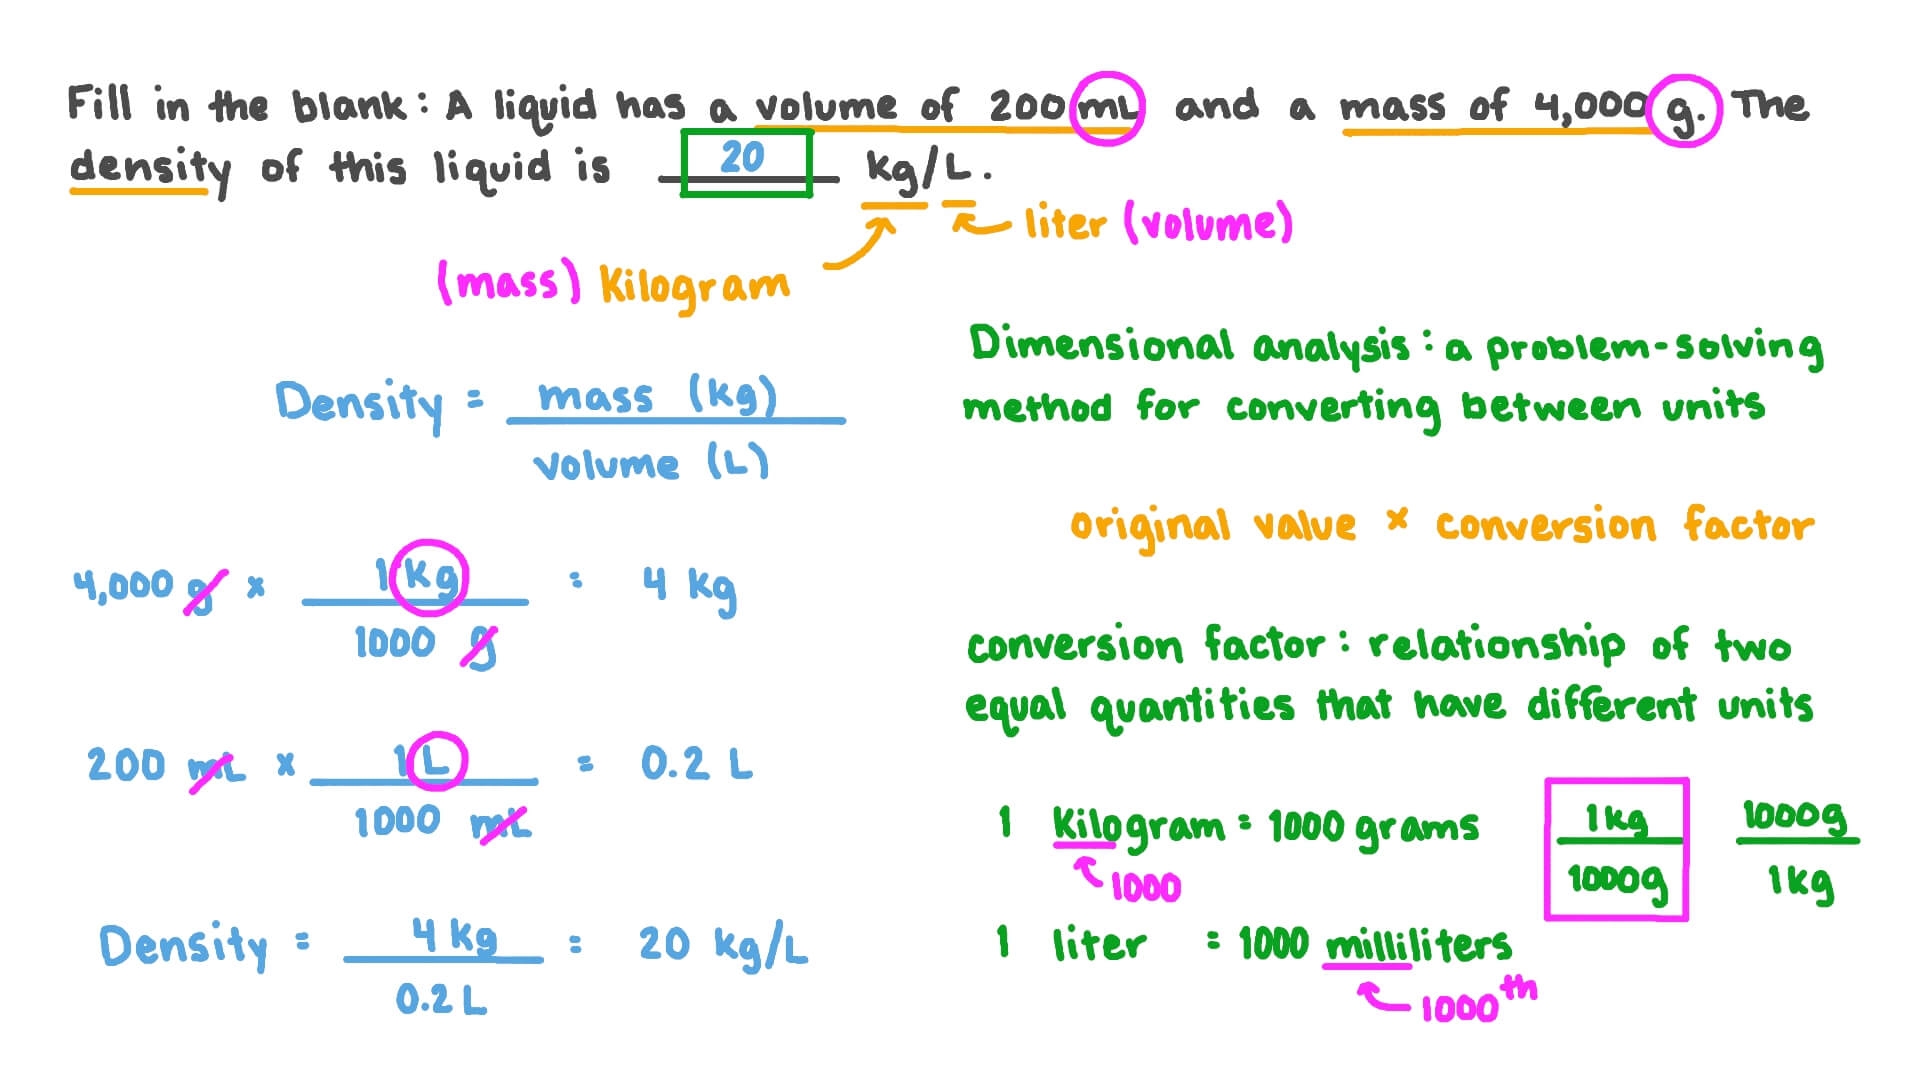 Fill in the blank: A liquid has a volume of 200 mL and a mass of 4,000 g. The
density of this liquid is 20 kg/L.
liter (volume)
(mass) Kilogram
Density = mass (kg)
volume (L)
Dimensional analysis: a problem-solving
method for converting between units
original value × conversion factor
4,000 g × 1 kg = 4 kg
1000 g
conversion factor: relationship of two
equal quantities that have different units
200 mL × 1 L = 0.2 L
1000 mL
1 Kilogram = 1000 grams
1000
1kg
1000g
1000g
1kg
1 liter = 1000 milliliters
1000th
Density = 4 kg = 20 kg/L
0.2 L